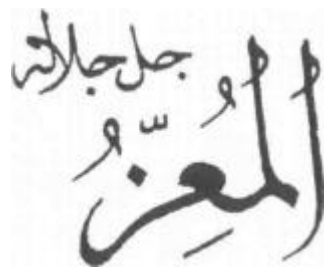 جل جلاله
المُعِزُّ